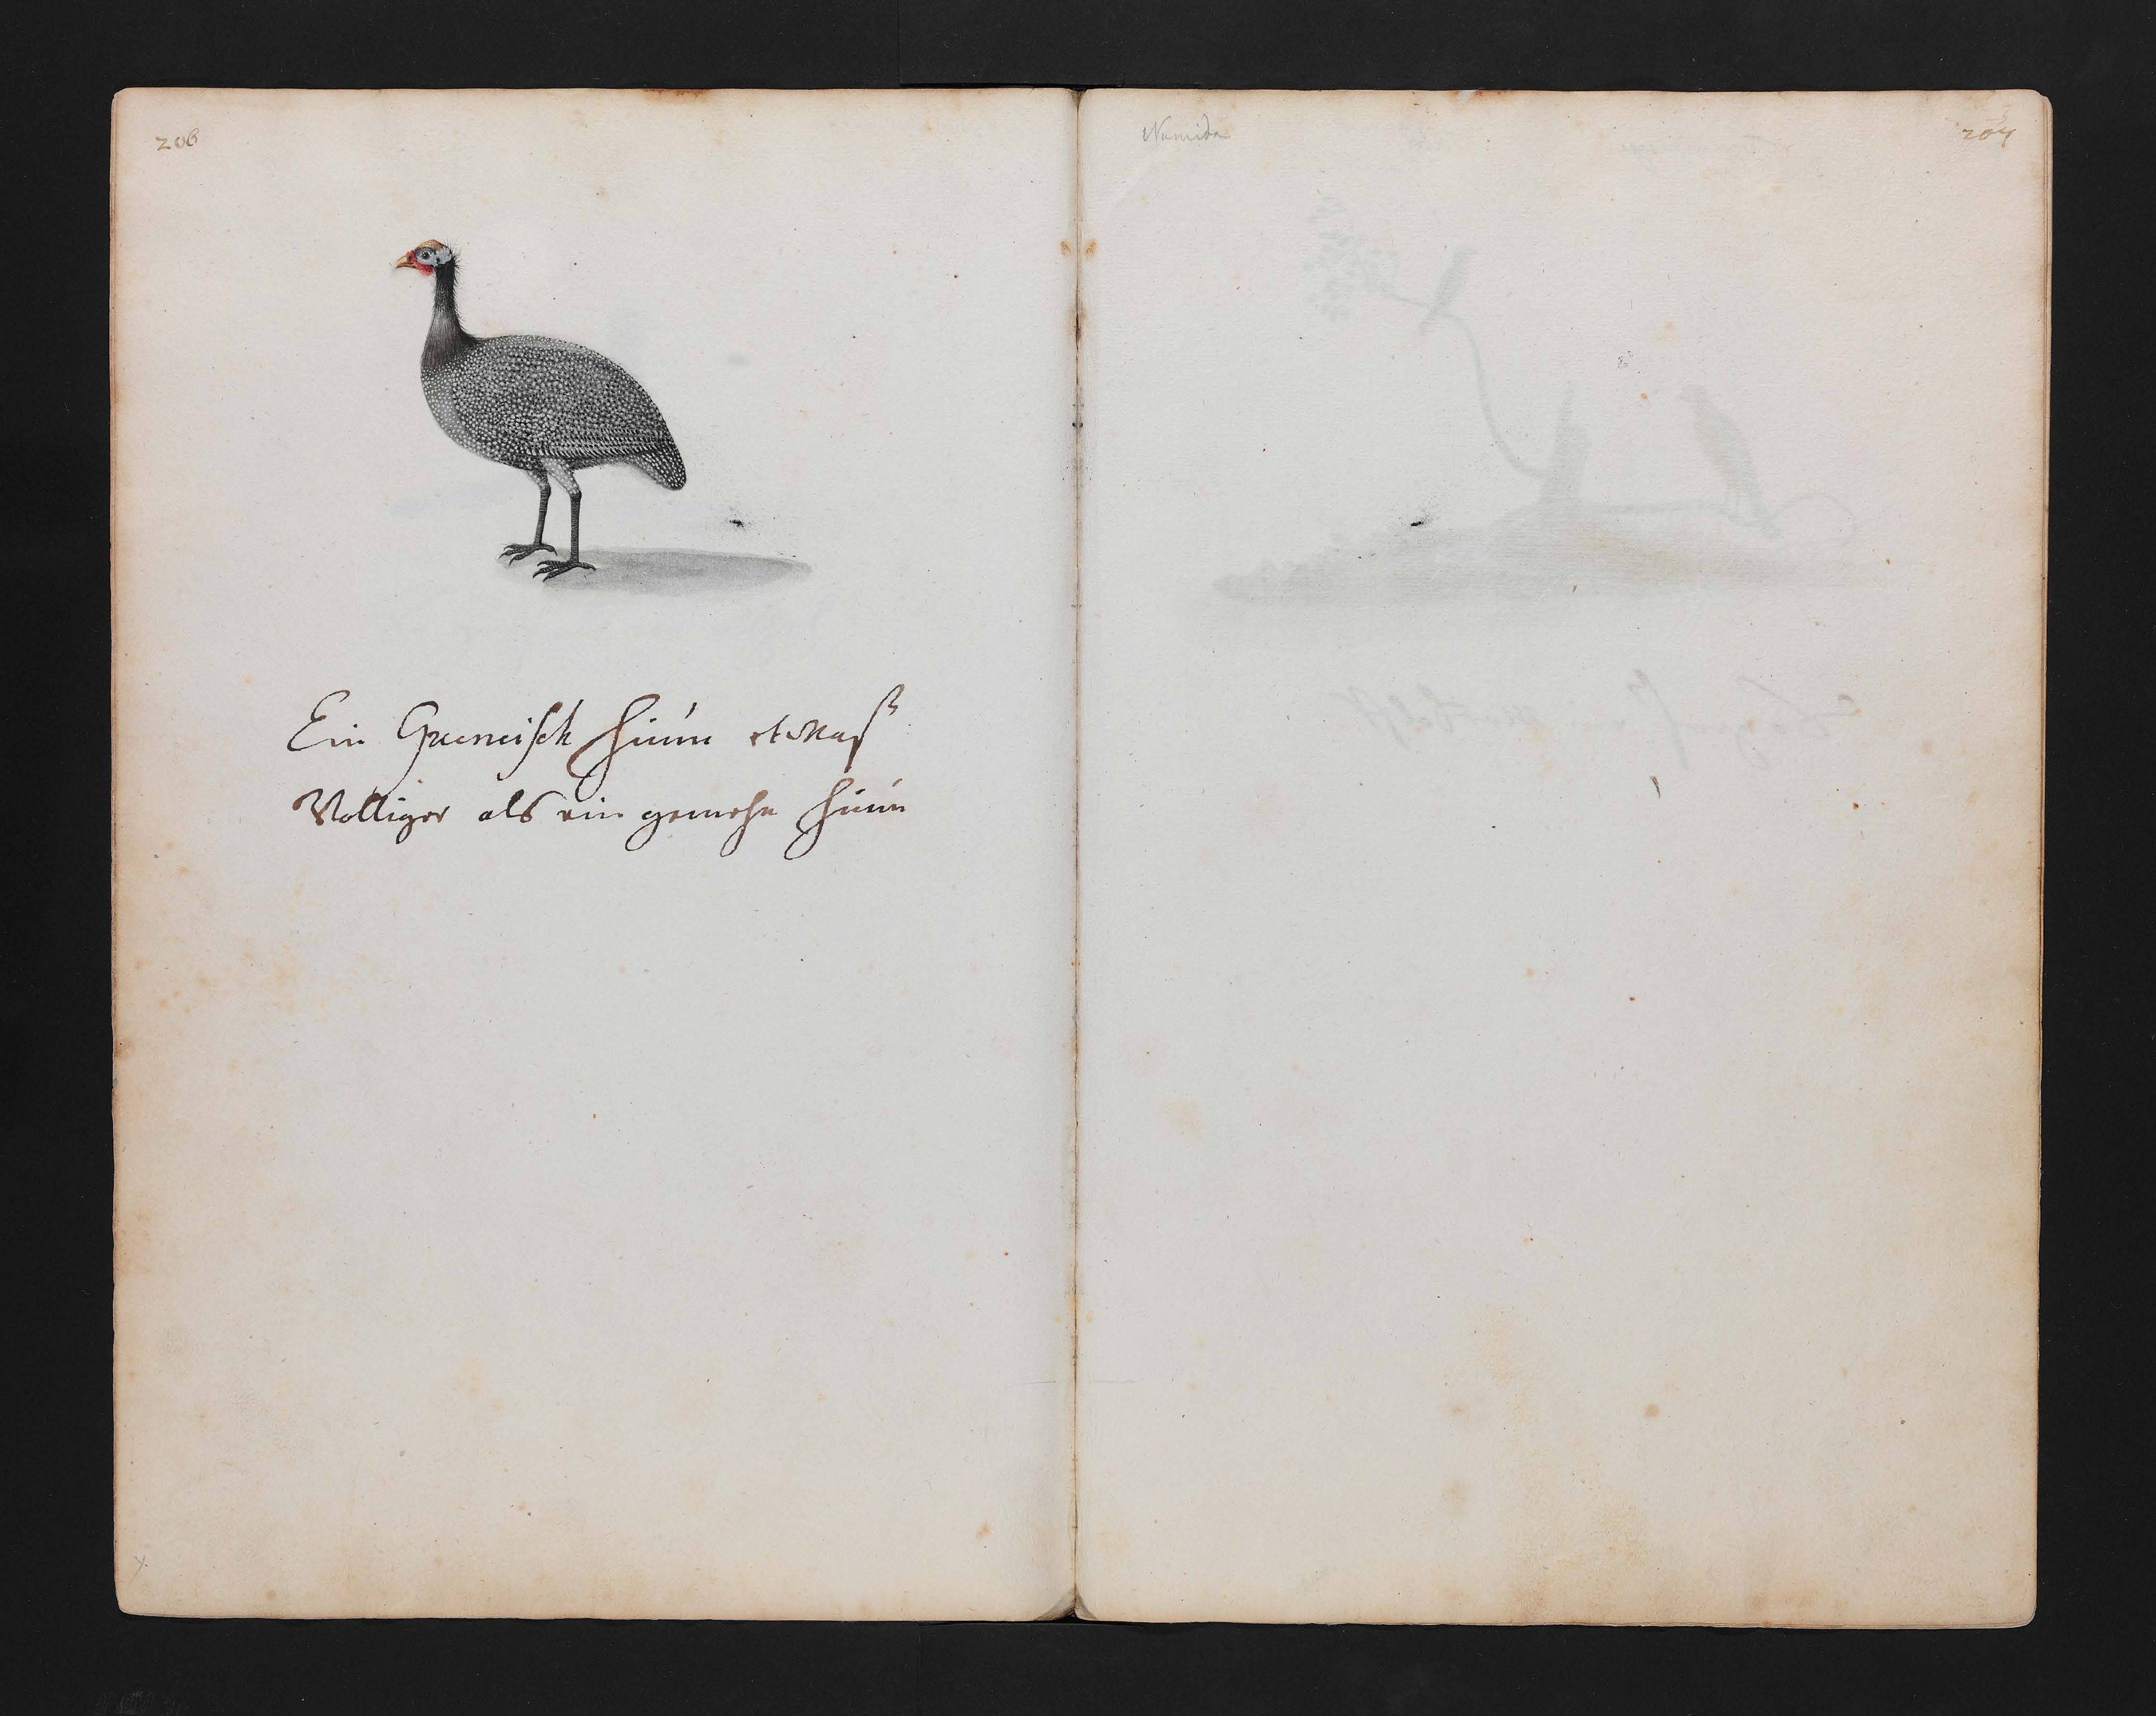 206
Ein Gueneisch huun etwaß
Volliger als ein gemehn huun
Numida
207